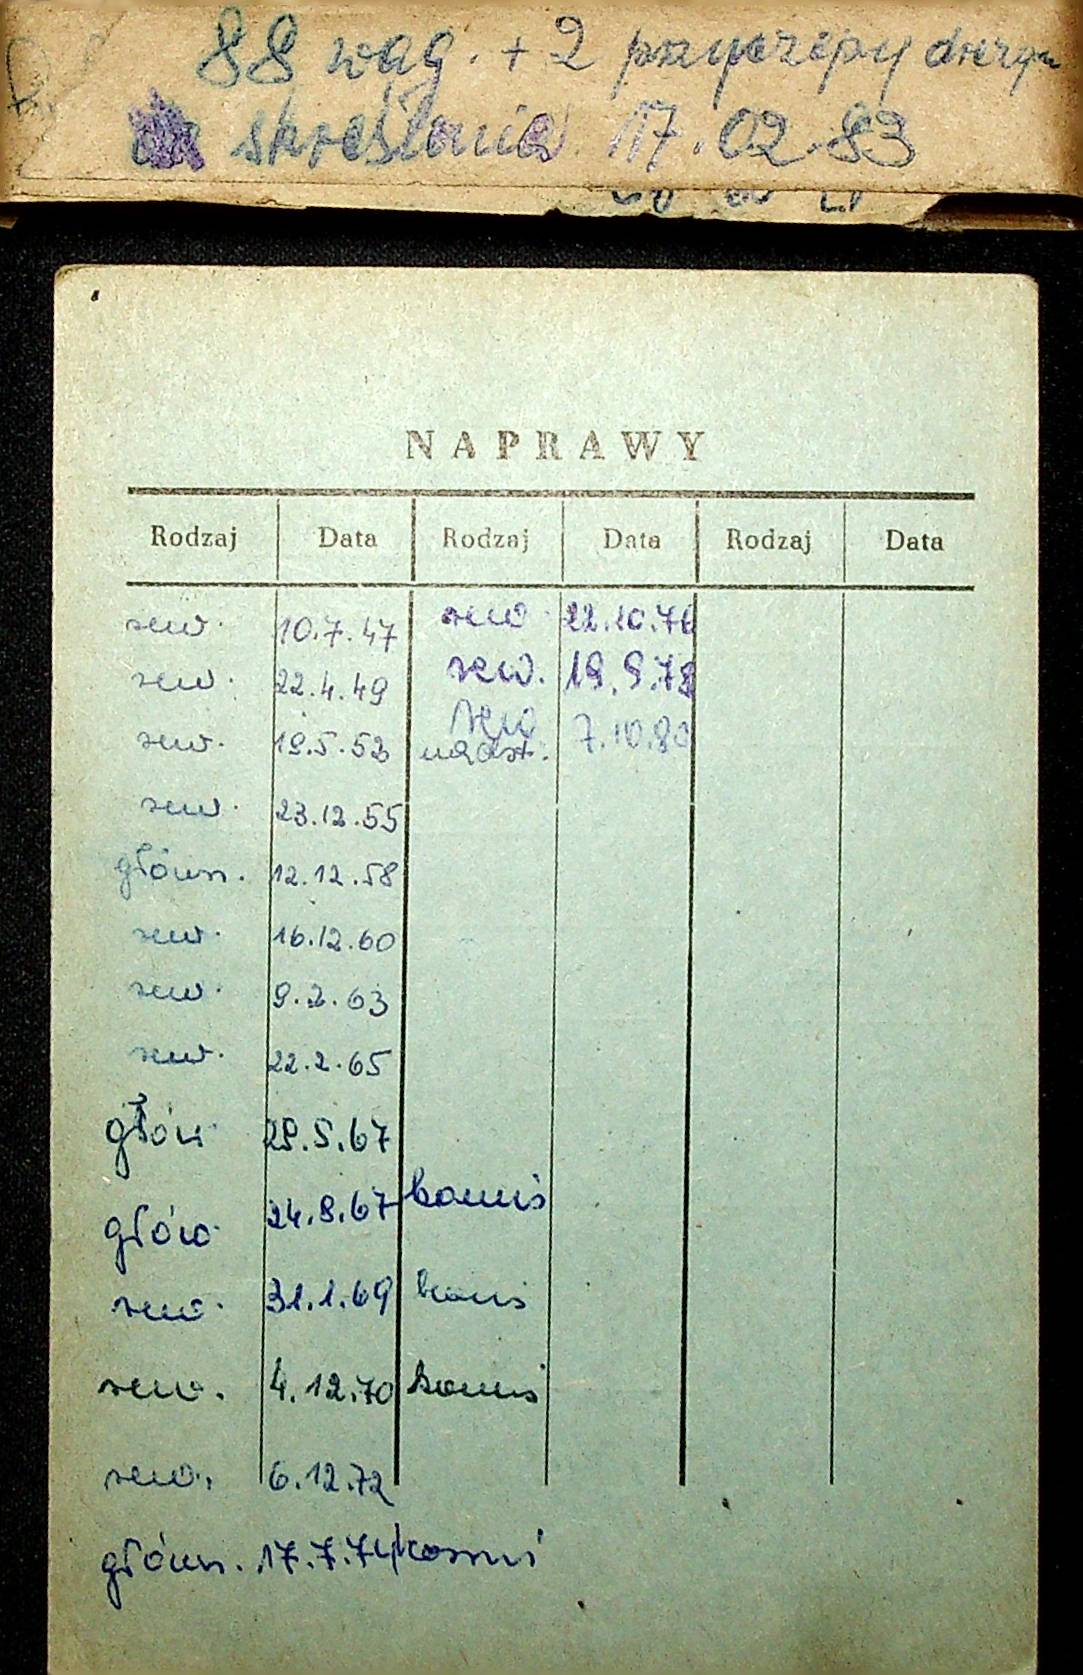 88 wag. + 2 przyczepy drezyn
skreślenia 17.02.83
NAPRAWY
Rodzaj Data Rodzaj Data Rodzaj Data
rew. 10.7.47 rew. 22.10.76
rew. 22.4.49 rew. 19.9.78
rew. 19.5.53 rew 7.10.80
rew. 23.12.55
główn. 12.12.58
rew. 16.12.60
rew. 9.2.63
rew. 22.2.65
głów 29.5.67
głów 24.8.67 komis
rew. 31.1.69 komis
rew. 4.12.70 komis
rew. 6.12.72
główn. 17.7.74 komis